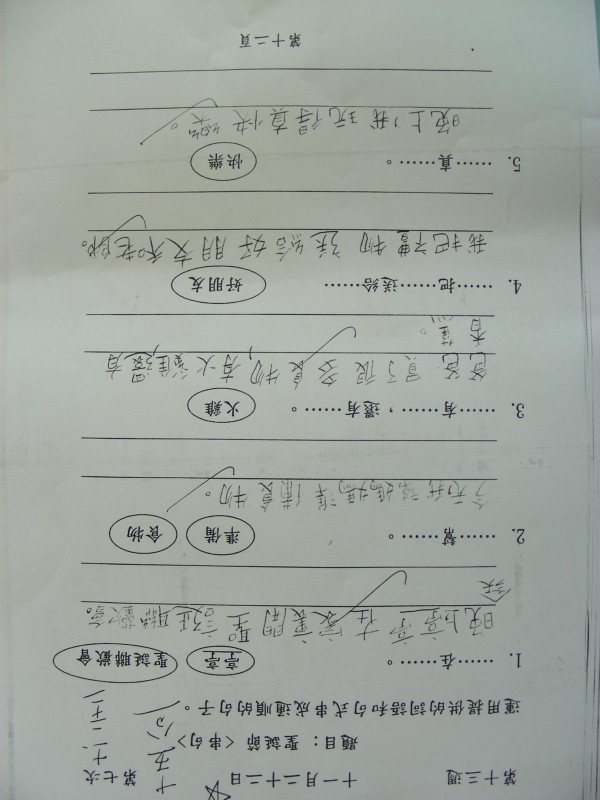 第十三週 十一月二十二日 第七次
題目：聖誕節〈串句〉
十五分
運用提供的詞語和句式串成通順的句子。
1. ……在……。 亭亭 聖誕聯歡會
晚上亭亭在家裏開聖誕聯歡會。
2. ……幫……。 準備 食物
今天我幫媽媽準備食物。
3. ……有……，還有……。 火雞
爸爸買了很多食物，有火雞，還有
香蕉。
4. ……把……送給…… 好朋友
我把禮物送給好朋友和老師。
5. ……真……。 快樂
晚上，我玩得真快樂。
第十二頁